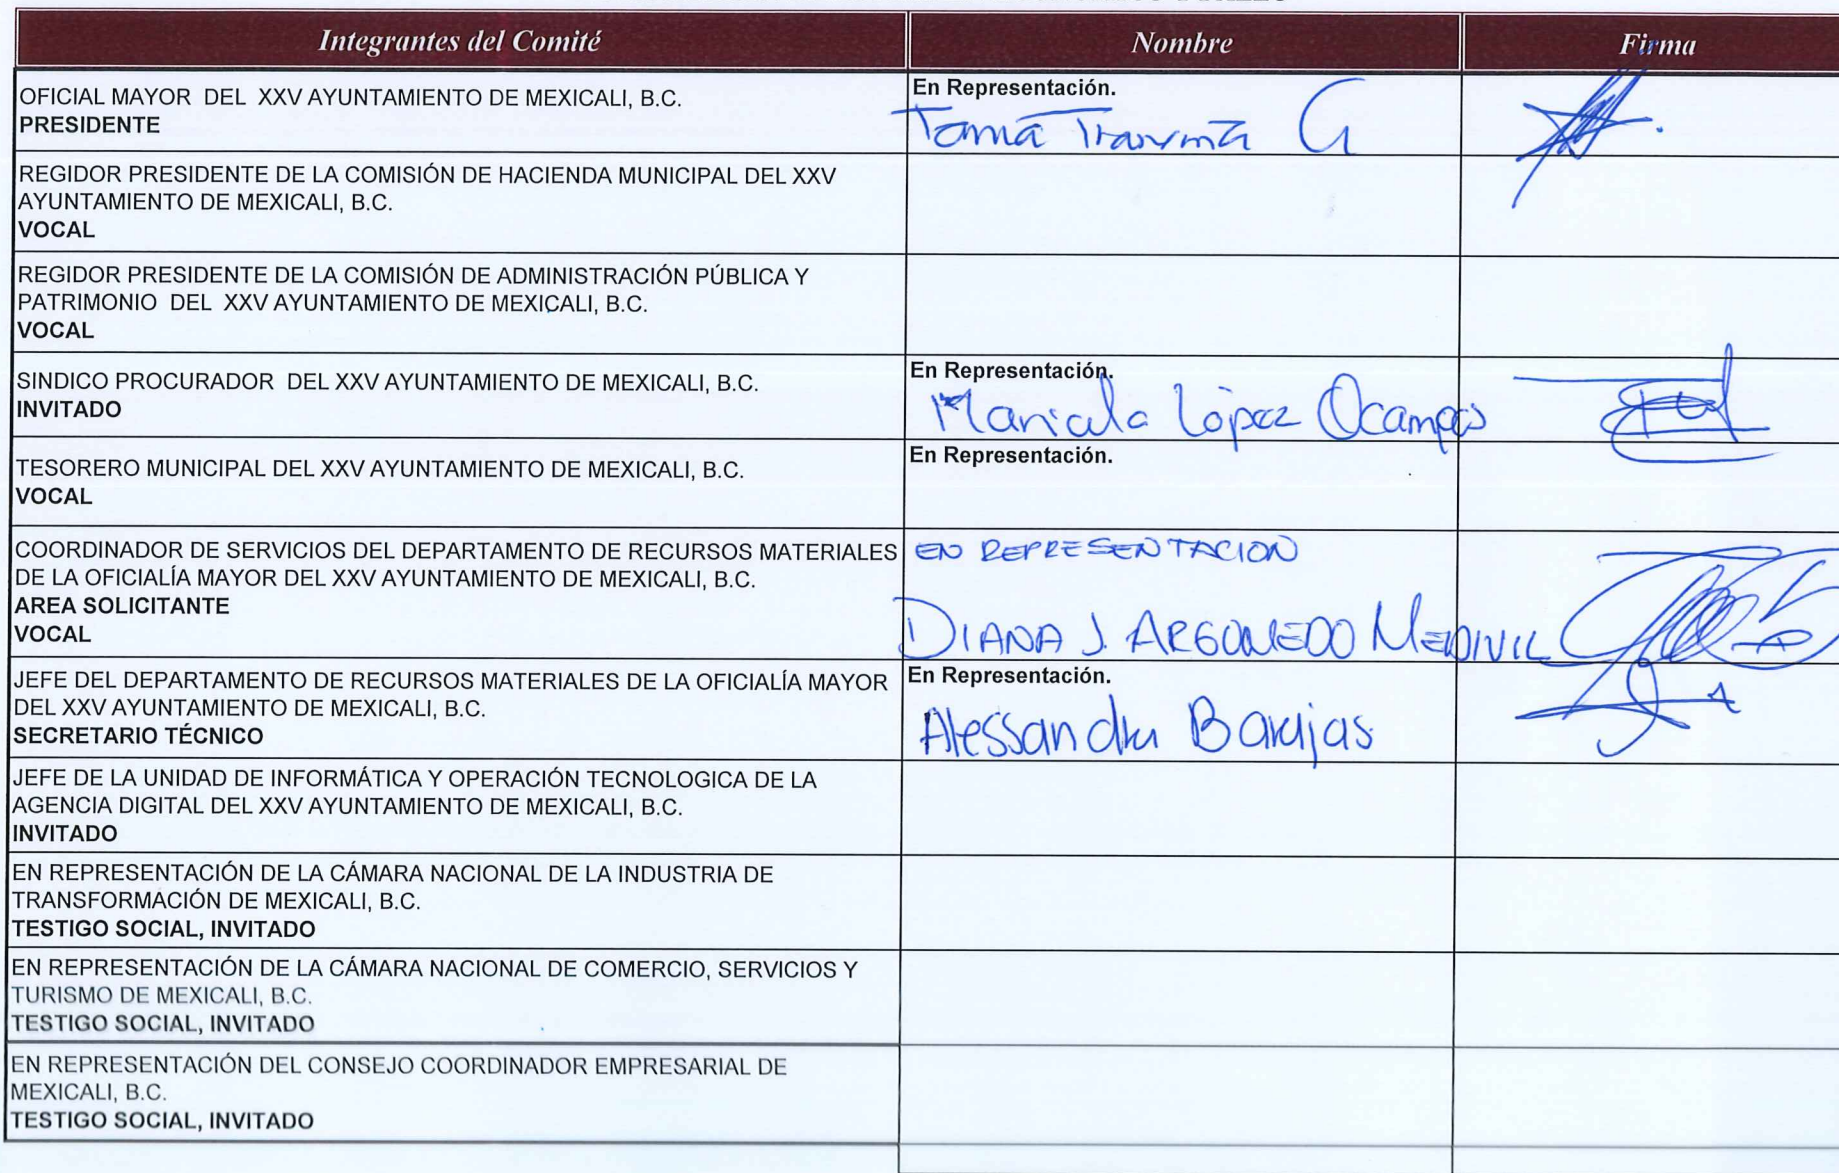 Integrantes del Comité
Nombre
Firma
OFICIAL MAYOR DEL XXV AYUNTAMIENTO DE MEXICALI, B.C.
PRESIDENTE
En Representación.
REGIDOR PRESIDENTE DE LA COMISIÓN DE HACIENDA MUNICIPAL DEL XXV
AYUNTAMIENTO DE MEXICALI, B.C.
VOCAL
REGIDOR PRESIDENTE DE LA COMISIÓN DE ADMINISTRACIÓN PÚBLICA Y
PATRIMONIO DEL XXV AYUNTAMIENTO DE MEXICALI, B.C.
VOCAL
SINDICO PROCURADOR DEL XXV AYUNTAMIENTO DE MEXICALI, B.C.
INVITADO
En Representación.
López Ocampo
TESORERO MUNICIPAL DEL XXV AYUNTAMIENTO DE MEXICALI, B.C.
VOCAL
En Representación.
COORDINADOR DE SERVICIOS DEL DEPARTAMENTO DE RECURSOS MATERIALES
DE LA OFICIALÍA MAYOR DEL XXV AYUNTAMIENTO DE MEXICALI, B.C.
AREA SOLICITANTE
VOCAL
EN REPRESENTACION
DIANA J. ARGOMEDO MEDIVIL
JEFE DEL DEPARTAMENTO DE RECURSOS MATERIALES DE LA OFICIALÍA MAYOR
DEL XXV AYUNTAMIENTO DE MEXICALI, B.C.
SECRETARIO TÉCNICO
En Representación.
Alessandra Barajas
JEFE DE LA UNIDAD DE INFORMÁTICA Y OPERACIÓN TECNOLOGICA DE LA
AGENCIA DIGITAL DEL XXV AYUNTAMIENTO DE MEXICALI, B.C.
INVITADO
EN REPRESENTACIÓN DE LA CÁMARA NACIONAL DE LA INDUSTRIA DE
TRANSFORMACIÓN DE MEXICALI, B.C.
TESTIGO SOCIAL, INVITADO
EN REPRESENTACIÓN DE LA CÁMARA NACIONAL DE COMERCIO, SERVICIOS Y
TURISMO DE MEXICALI, B.C.
TESTIGO SOCIAL, INVITADO
EN REPRESENTACIÓN DEL CONSEJO COORDINADOR EMPRESARIAL DE
MEXICALI, B.C.
TESTIGO SOCIAL, INVITADO